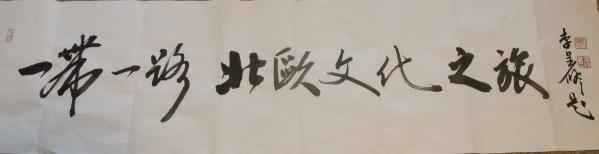 一带一路 北欧文化之旅
李 题